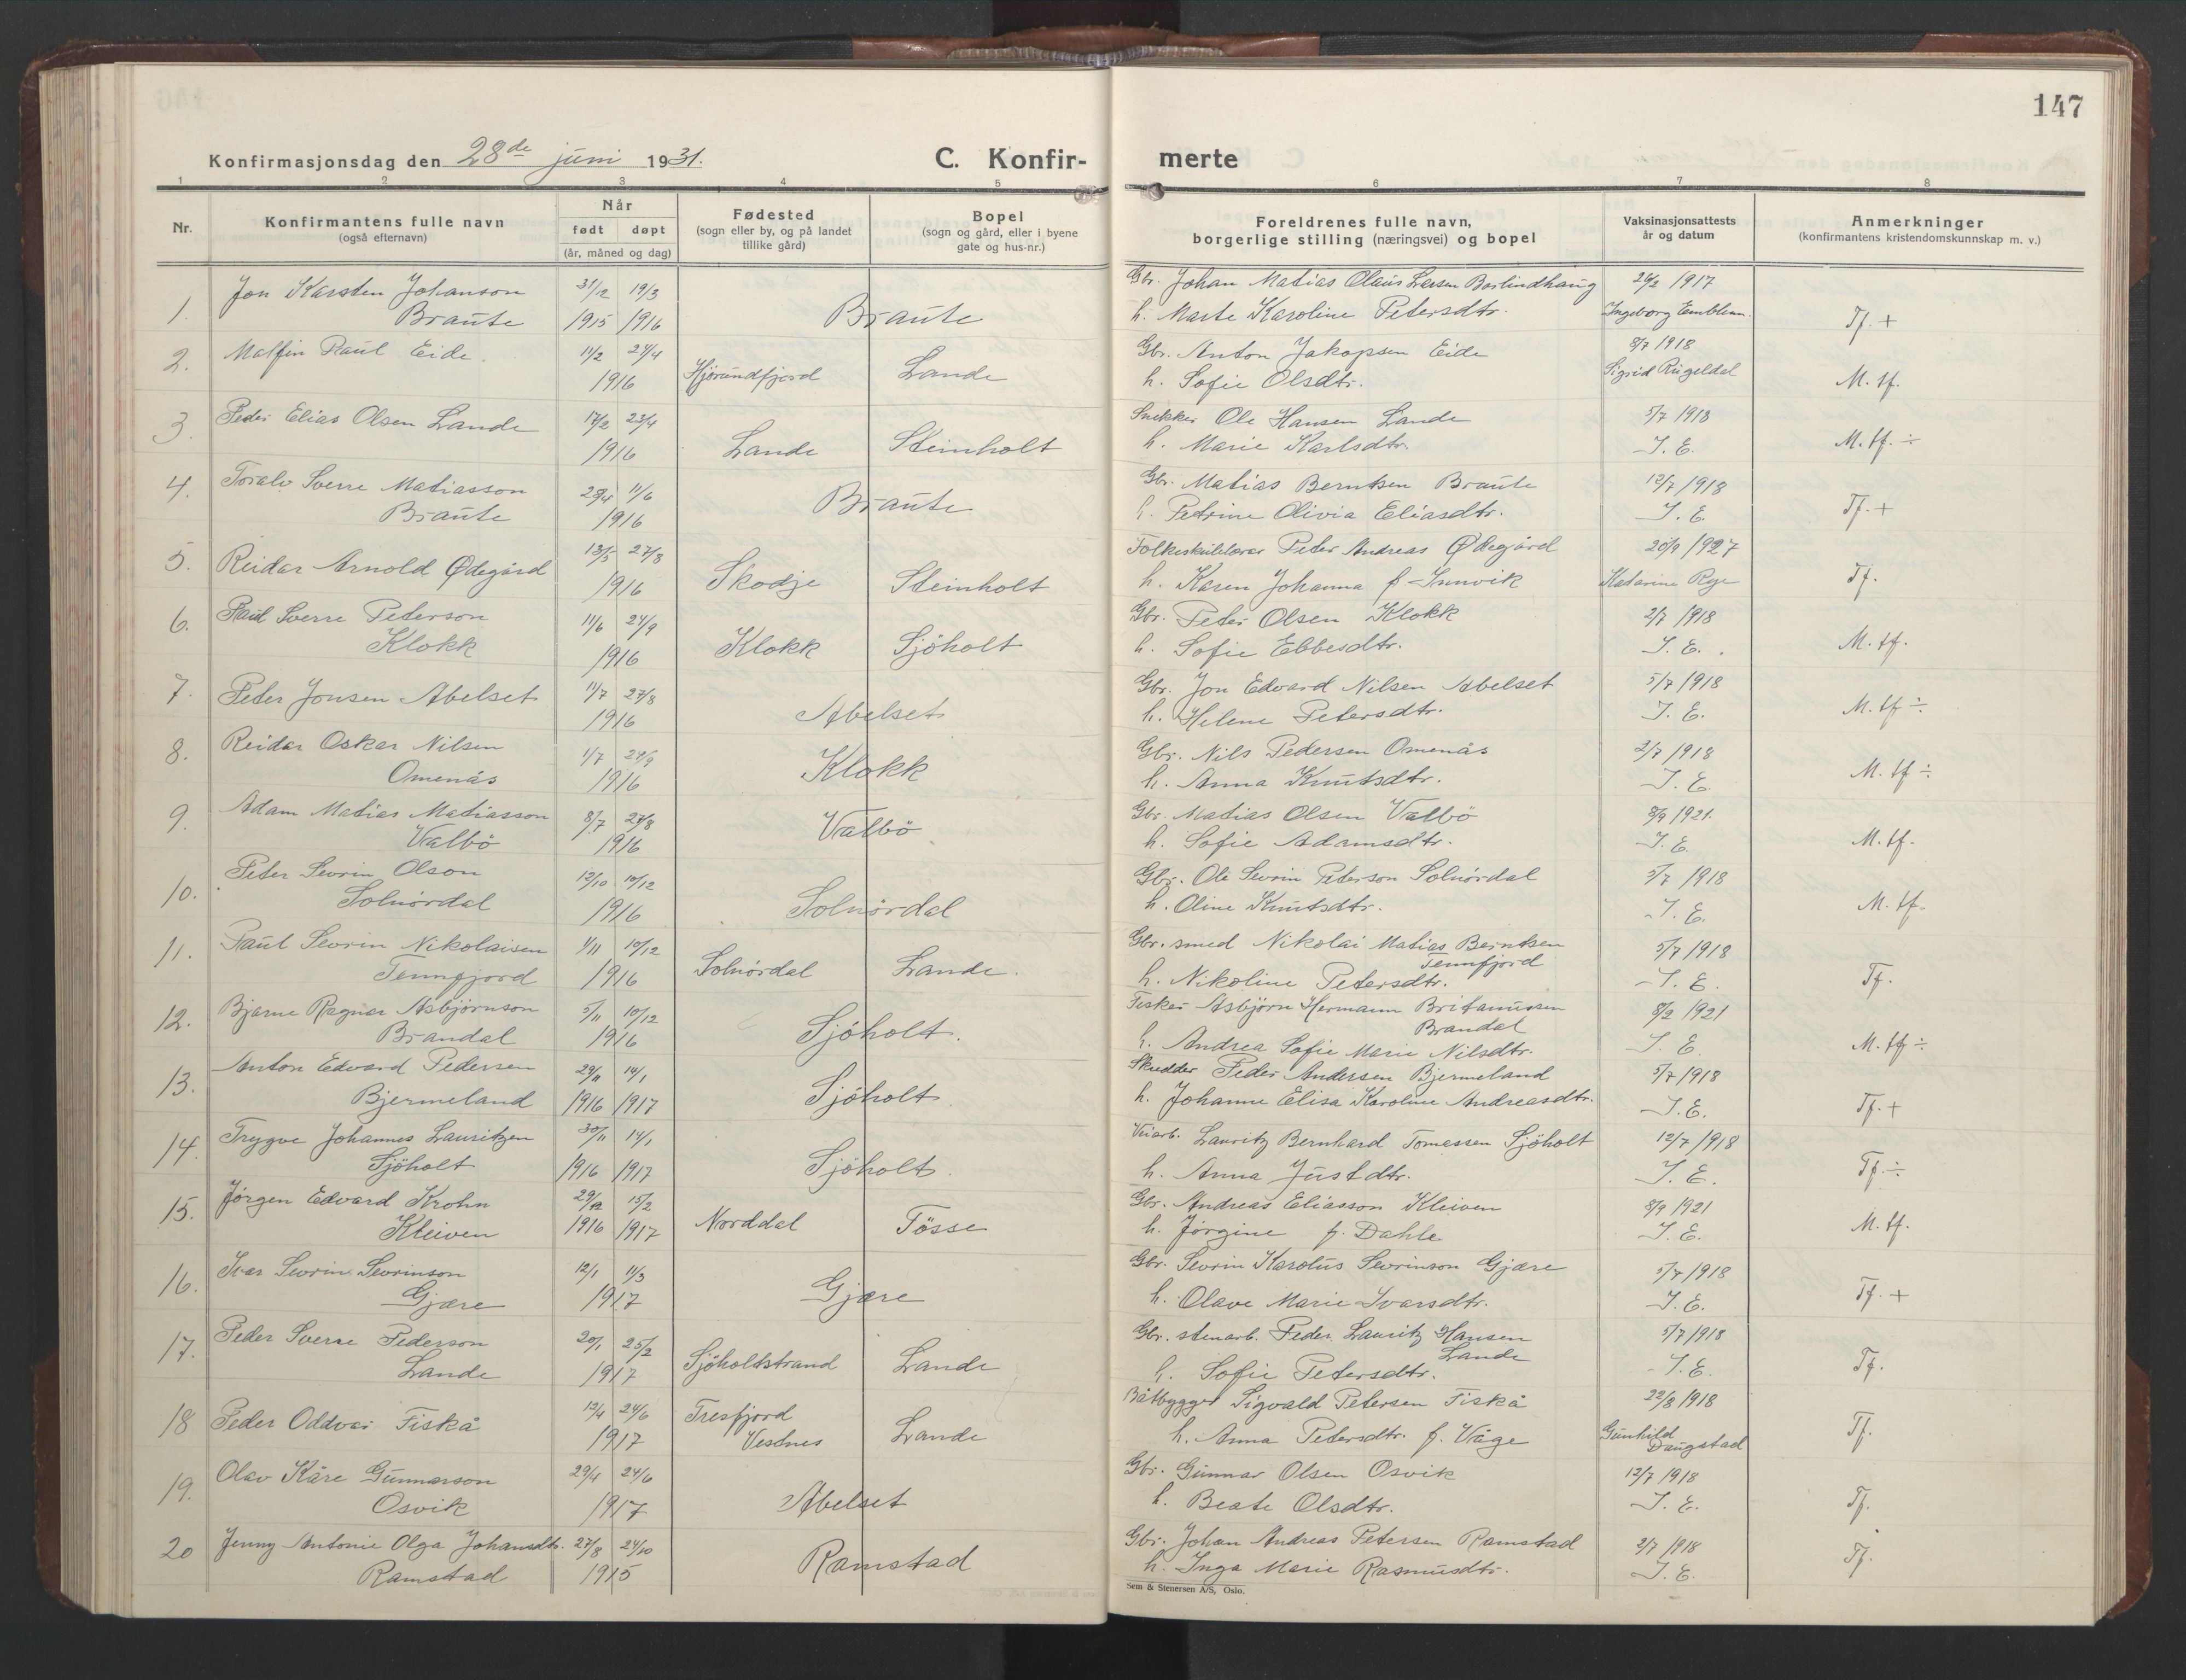 147
Konfirmasjonsdag den 28de juni 1931.
C. Konfir-
merte
1 2 3 4 5 6 7 8
Nr.
Konfirmantens fulle navn
(også efternavn)
Når
født døpt
(år, måned og dag)
Fødested
(sogn eller by, og på landet
tillike gård)
Bopel
(sogn og gård, eller i byene
gate og hus-nr.)
Foreldrenes fulle navn,
borgerlige stilling (næringsvei) og bopel
Vaksinasjonsattests
år og datum
Anmerkninger
(konfirmantens kristendomskunnskap m. v.)
Jon Karsten Johanson 31/12 19/3 Gbr. Johan Matias Olaus Larsen 26/2 1917
1. Braute 1915 1916 Braute h. Marte Karoline Petersdtr. Ingeborg Emblem. Tf. +
2. Malfin Paul Eide. 11/2 24/4 Gbr. Anton Jakopsen Eide 8/7 1918
1916 Hjörundfjord Lande h. Sofie Olsdtr. Sigrid M. tf.
3. Peder Elias Olsen Lande 17/2 23/4 Snekker Ole Hansen Lande 5/7 1918
1916 Lande Steinholt h. Marie Karlsdtr. I. E. M. tf. ÷
4. Toralv Sverre Matiasson 11/6 Gbr. Matias Berntsen Braute 12/7 1918
Braute 1916 Braute h. Petrine Olivia Eliasdtr. I. E. Tf. +
5. Reidar Arnold Ødegård 13/5 27/8 Folkeskulelærar Peter Andreas Ødegård 20/9 1927
1916 Skodje Steinholt h. Karen Johanna f. Innvik Katarina Tf.
6. Paul Sverre Peterson 11/6 24/9 Gbr. Peter Olsen Klokk 2/7 1918
Klokk 1916 Klokk Sjöholt h. Sofie Ebbesdtr. I. E. M. tf.
7. Peter Jonsen Abelset 11/7 27/8 Gbr. Jon Edvard Nilsen Abelset 5/7 1918
1916 Abelset h. Helene Petersdtr. I. E. M. tf ÷
8. Reidar Oskar Nilsen 1/7 24/9 Gbr. Nils Pedersen Omenås 2/7 1918
Omenås 1916 Klokk h. Anna Knutsdtr. I. E. M. tf ÷
9. Adam Matias Matiasson 8/7 27/8 Gbr. Matias Olsen Valbö 8/9 1921.
Valbö 1916 Valbö h. Sofie Adamsdtr. I. E. M. tf.
10. Peter Sevrin Olson 12/10 10/12 Gbr. Ole Sevrin Peterson Solnördal 5/7 1918
Solnördal 1916 Solnördal h. Oline Knutsdtr. I. E. M. tf.
11. Paul Sevrin Nikolaisen 1/11 10/12 Gbr. smed Nikolai Matias Berntsen 5/7 1918
Tennfjord 1916 Solnördal Lande. Tennfjord
h. Nikoline Petersdtr. I. E. Tf.
12. Bjarne Ragnar Asbjørnson 5/11 10/12 Fisker Asbjörn Hermann Britanussen 8/2 1921
Brandal 1916 Sjöholt. Brandal
h. Andrea Sofie Marie Nilsdtr. I. E. M. tf ÷
13. Anton Edvard Pedersen 29/11 14/1 Skredder Peder Andersen Bjermeland 5/7 1918
Bjermeland 1916 1917 Sjöholt h. Johanne Elisa Karoline Andreasdtr. I. E. Tf. +
14. Trygve Johannes Lauritzen 30/11 14/1 Veiarb. Lauritz Bernhard Tomassen Sjöholt 12/7 1918
Sjöholt 1916 1917 Sjöholt. h. Anna Justdtr. I. E. Tf. ÷
15. Jørgen Edvard Krohn 29/12 15/2 Gbr. Andreas Eliasson Kleiven 8/9 1921
Kleiven 1916 1917 Norddal Tösse h. Jørgine f. Dahle I. E. M. tf.
16. Ivar Sevrin Sevrinson 12/1 11/3 Gbr. Sevrin Karolus Sevrinson Gjære 5/7 1918
Gjære 1917 Gjære h. Olave Marie Ivarsdtr. I. E. Tf. +
17. Peder Sverre Pederson 20/1 25/2 Gbr. stenarb. Peder Lauritz Hansen 5/7 1918
Lande 1917 Sjöholtstrand Lande Lande
h. Sofie Petersdtr. I. E. Tf.
18 Peder Oddvar Fiskå 12/4 24/6 Tresfjord Båtbygger Sigvald Petersen Fiskå 22/8 1918
1917 Vestnes Lande h. Anna Petersdtr. f. Våge Gunhild Daugstad Tf.
19. Olav Kåre Gunnarson 29/4 24/6 Gbr. Gunnar Olsen Osvik 12/7 1918
Osvik 1917 Abelset h. Beate Olsdtr. I. E. Tf.
20 Jenny Antonie Olga Johansdtr. 27/8 24/10 Gbr. Johan Andreas Petersen Ramstad 2/7 1918
Ramstad 1915 Ramstad h. Inga Marie Rasmusdtr. I. E. Tf.
Sem & Stenersen A/S, Oslo.